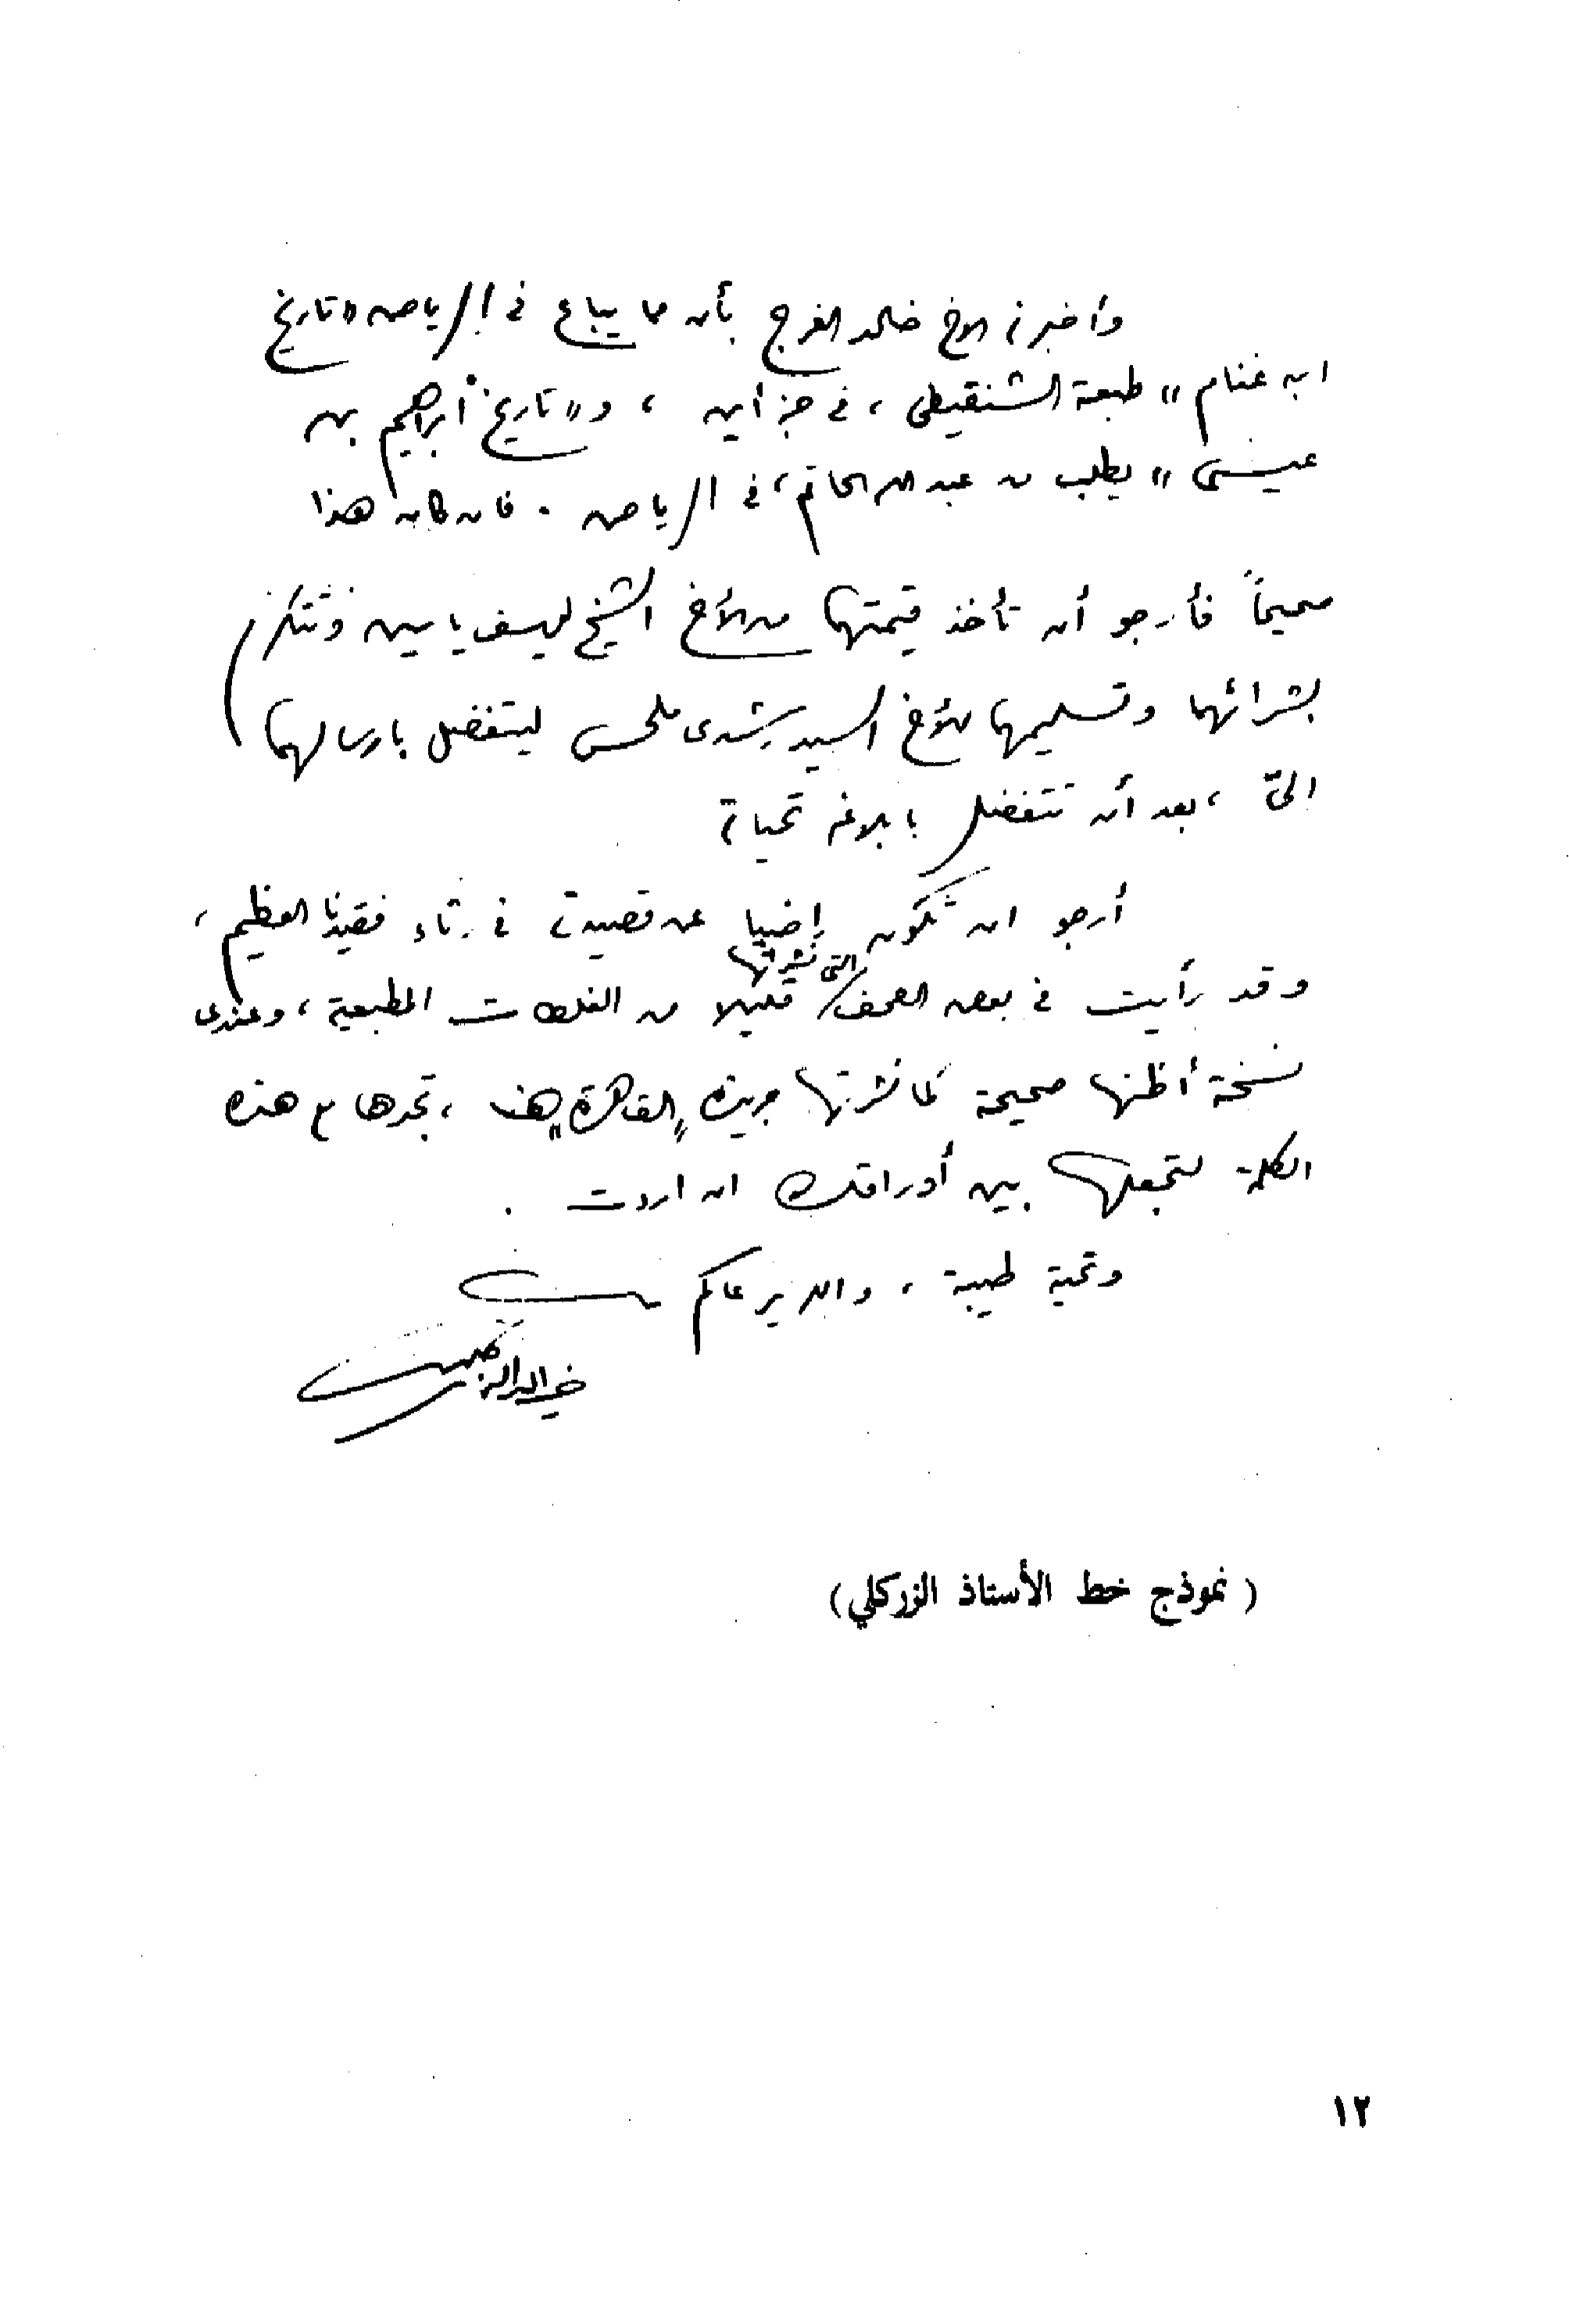 وأخبرني الاخ خالد الفرج بأن مما يباع في الرياض «تاريخ
ابن غنام» طبعة الشنقيطي، في جزأين، و«تاريخ ابراهيم بن
عيسى» يطلب من عبد الله الحاتم، في الرياض. فان كان هذا
صحيحاً فأرجو أن تأخذ قيمتها من الأخ الشيخ يوسف ياسين وتتكرم
بشرائهما وتسليمهما للأخ السيد رشدى ملحس ليتفضل بارسالهما
اليّ، بعد أن تتفضل بابلاغه تحياتي
أرجو ان تكون راضيا عن قصيدتي في رثاء فقيدنا العظيم،
وقد رأيت في بعض الصحف التي نشرتها قليلا من الغلطات المطبعية، وعندى
نسخة أظنها صحيحة كما نشرتها جريدة "القاهرة" هنا، تجدها مع هذه
الكلمة لتجعلها بين أوراقك ان اردت.
وتحية طيبة، والله يرعاكم
خير الدين الزركلي
(نموذج خط الأستاذ الزركلي)
١٢